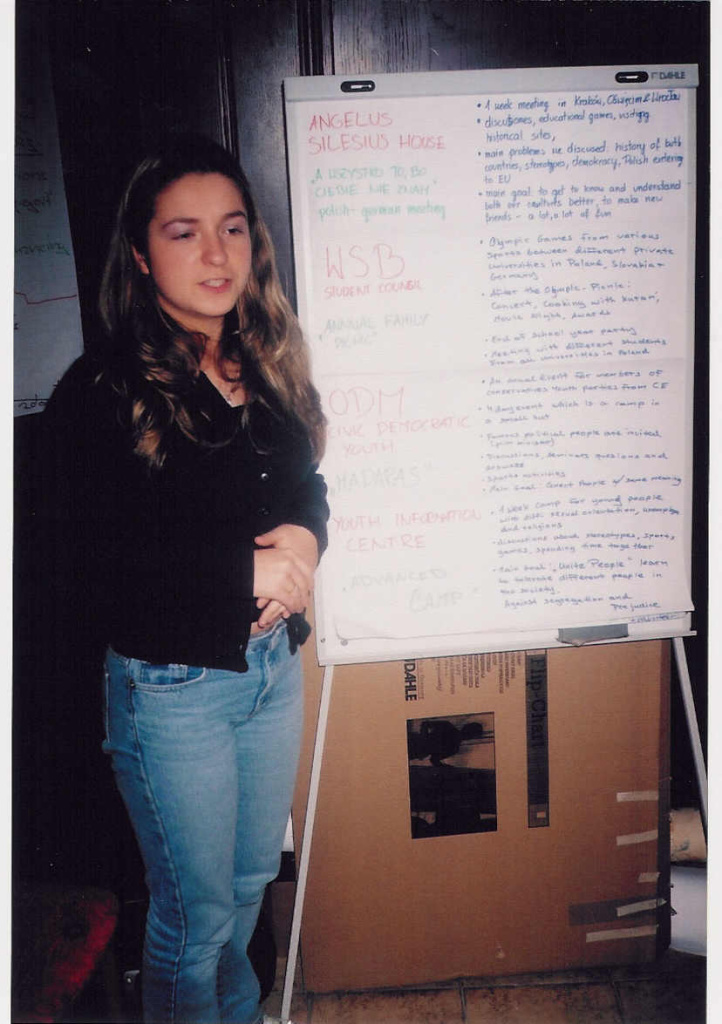 DAHLE
ANGELUS
SILESIUS HOUSE
"A WSZYSTKO TO, BO
CIEBIE NIE ZNAM"
polish-german meeting
• 1 week meeting in Kraków, Oświęcim & Wrocław
• discutiones, educational games, visiting
historical sites,
• main problems we discused: history of both
countries, stereotypes, democracy, Polish entering
to EU
• main goal: to get to know and understand
both our better, to make new
friends - a lot, a lot of fun
WSB
STUDENT COUNCIL
"ANNUAL FAMILY
PICNIC"
• Olympic Games from various
sports between different private
universities in Poland, Slovakia +
Germany
• After the Olympic - Picnic:
Concert, Cooking with
Movie Night, Awards
• End of School year party
• Meeting with different students
from universities in Poland
ODM
CIVIC DEMOCRATIC
YOUTH
"MADARAS"
• An annual Event for members of
conservatives Youth parties from CE
• 4 day event which is a camp in
a small hut
• Famous political people are invited
(prim minister)
• Discussions, seminars and
• Sports activities
• Main Goal: People w/ same meaning
YOUTH INFORMATION
CENTRE
"ADVANCED
CAMP"
• 1 week camp for young people
with diff. sexual orientation,
and religions
• discutions about stereotypes, sports
games, spending time together
• Main goal: "Unite People" learn
to tolerate different people in
the society.
Against segregation and
Prejudice
DAHLE
Flip-Chart